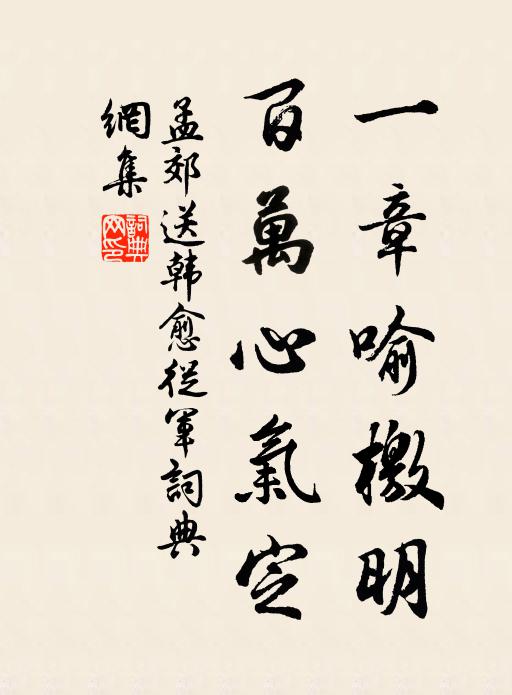 一章喻檄明
百萬心氣定
孟郊送韩愈從軍詞典
網集
詞典
网印